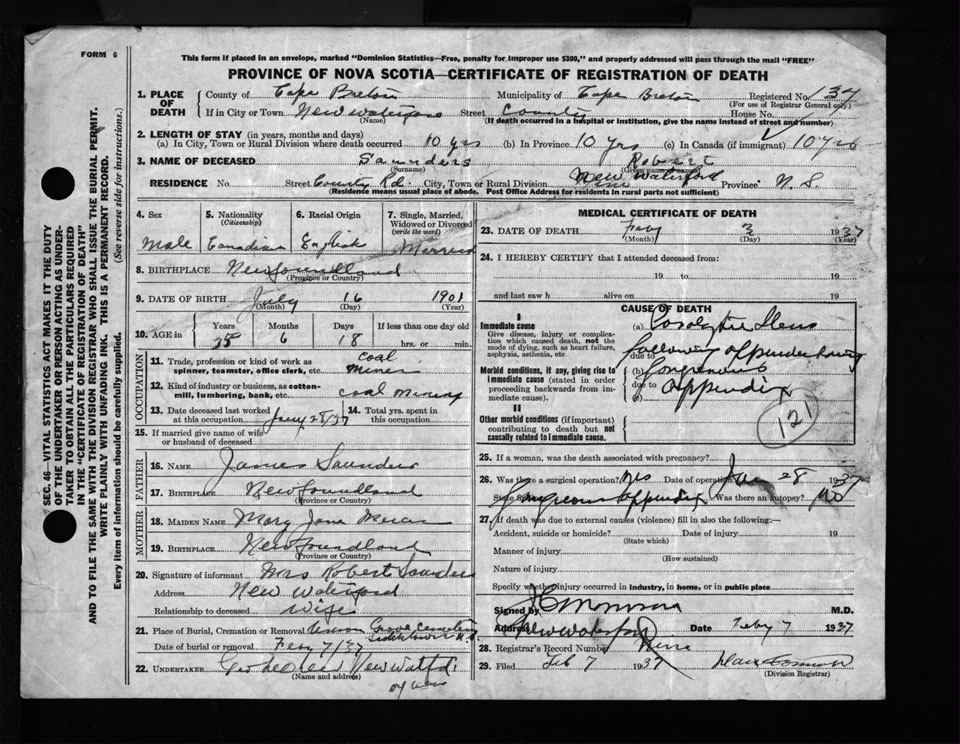 FORM 6
This form if placed in an envelope, marked "Dominion Statistics—Free, penalty for improper use $300," and properly addressed will pass through the mail "FREE"
PROVINCE OF NOVA SCOTIA—CERTIFICATE OF REGISTRATION OF DEATH
1. PLACE OF DEATH
County of Cape Breton Municipality of Cape Breton Registered No. 137
(For use of Registrar General only)
If in City or Town New Waterford Street County House No.
(Name) (If death occurred in a hospital or institution, give the name instead of street and number)
2. LENGTH OF STAY (in years, months and days)
(a) In City, Town or Rural Division where death occurred 10 yrs (b) In Province 10 yrs (c) In Canada (if immigrant) 10 yrs
3. NAME OF DECEASED Saunders Robert
(Surname)
RESIDENCE No. Street County Rd. City, Town or Rural Division New Waterford Province N. S.
(Residence means usual place of abode. Post Office Address for residents in rural parts not sufficient)
4. Sex 5. Nationality 6. Racial Origin 7. Single, Married,
(Citizenship) Widowed or Divorced
(write the word)
Male Canadian English Married
8. BIRTHPLACE Newfoundland
(Province or Country)
9. DATE OF BIRTH July 16 1901
(Month) (Day) (Year)
10. AGE in Years Months Days If less than one day old
35 6 18 hrs. or min.
OCCUPATION
11. Trade, profession or kind of work as spinner, teamster, office clerk, etc. Coal Miner
12. Kind of industry or business, as cotton-mill, lumbering, bank, etc. Coal Mining
13. Date deceased last worked at this occupation 28/37 14. Total yrs. spent in this occupation
15. If married give name of wife or husband of deceased
FATHER
16. NAME James Saunders
17. BIRTHPLACE Newfoundland
(Province or Country)
MOTHER
18. MAIDEN NAME Mary Jane
19. BIRTHPLACE Newfoundland
(Province or Country)
20. Signature of informant Mrs Robert Saunders
Address New Waterford
Relationship to deceased Wife
21. Place of Burial, Cremation or Removal Grove Cemetery
Date of burial or removal Feby 7/37
22. UNDERTAKER New Watfd
(Name and address)
MEDICAL CERTIFICATE OF DEATH
23. DATE OF DEATH Feby 3 1937
(Month) (Day) (Year)
24. I HEREBY CERTIFY that I attended deceased from:
19 to 19
and last saw h alive on 19
CAUSE OF DEATH
I
Immediate cause
Give disease, injury or complication which caused death, not the mode of dying, such as heart failure, asphyxia, asthenia, etc.
(a) Ileus
due to following
Morbid conditions, if any, giving rise to immediate cause (stated in order proceeding backwards from immediate cause).
(b) Gangrenous
due to Appendix
(c)
121
II
Other morbid conditions (if important) contributing to death but not causally related to immediate cause.
25. If a woman, was the death associated with pregnancy?
26. Was there a surgical operation? Yes Date of operation Jan 28 1937
State findings Gangrenous Appendix Was there an autopsy? No
27. If death was due to external causes (violence) fill in also the following:—
Accident, suicide or homicide? Date of injury 19
(State which)
Manner of injury
(How sustained)
Nature of injury
Specify whether injury occurred in industry, in home, or in public place
Signed by M.D.
Address New Waterford Date Feby 7 1937
28. Registrar's Record Number
29. Filed Feb 7 1937
(Division Registrar)
SEC. 46—VITAL STATISTICS ACT MAKES IT THE DUTY
OF THE UNDERTAKER OR PERSON ACTING AS UNDER-
TAKER TO OBTAIN ALL THE PARTICULARS REQUIRED
IN THE "CERTIFICATE OF REGISTRATION OF DEATH"
AND TO FILE THE SAME WITH THE DIVISION REGISTRAR WHO SHALL ISSUE THE BURIAL PERMIT.
WRITE PLAINLY WITH UNFADING INK. THIS IS A PERMANENT RECORD.
Every item of information should be carefully supplied. (See reverse side for instructions.)